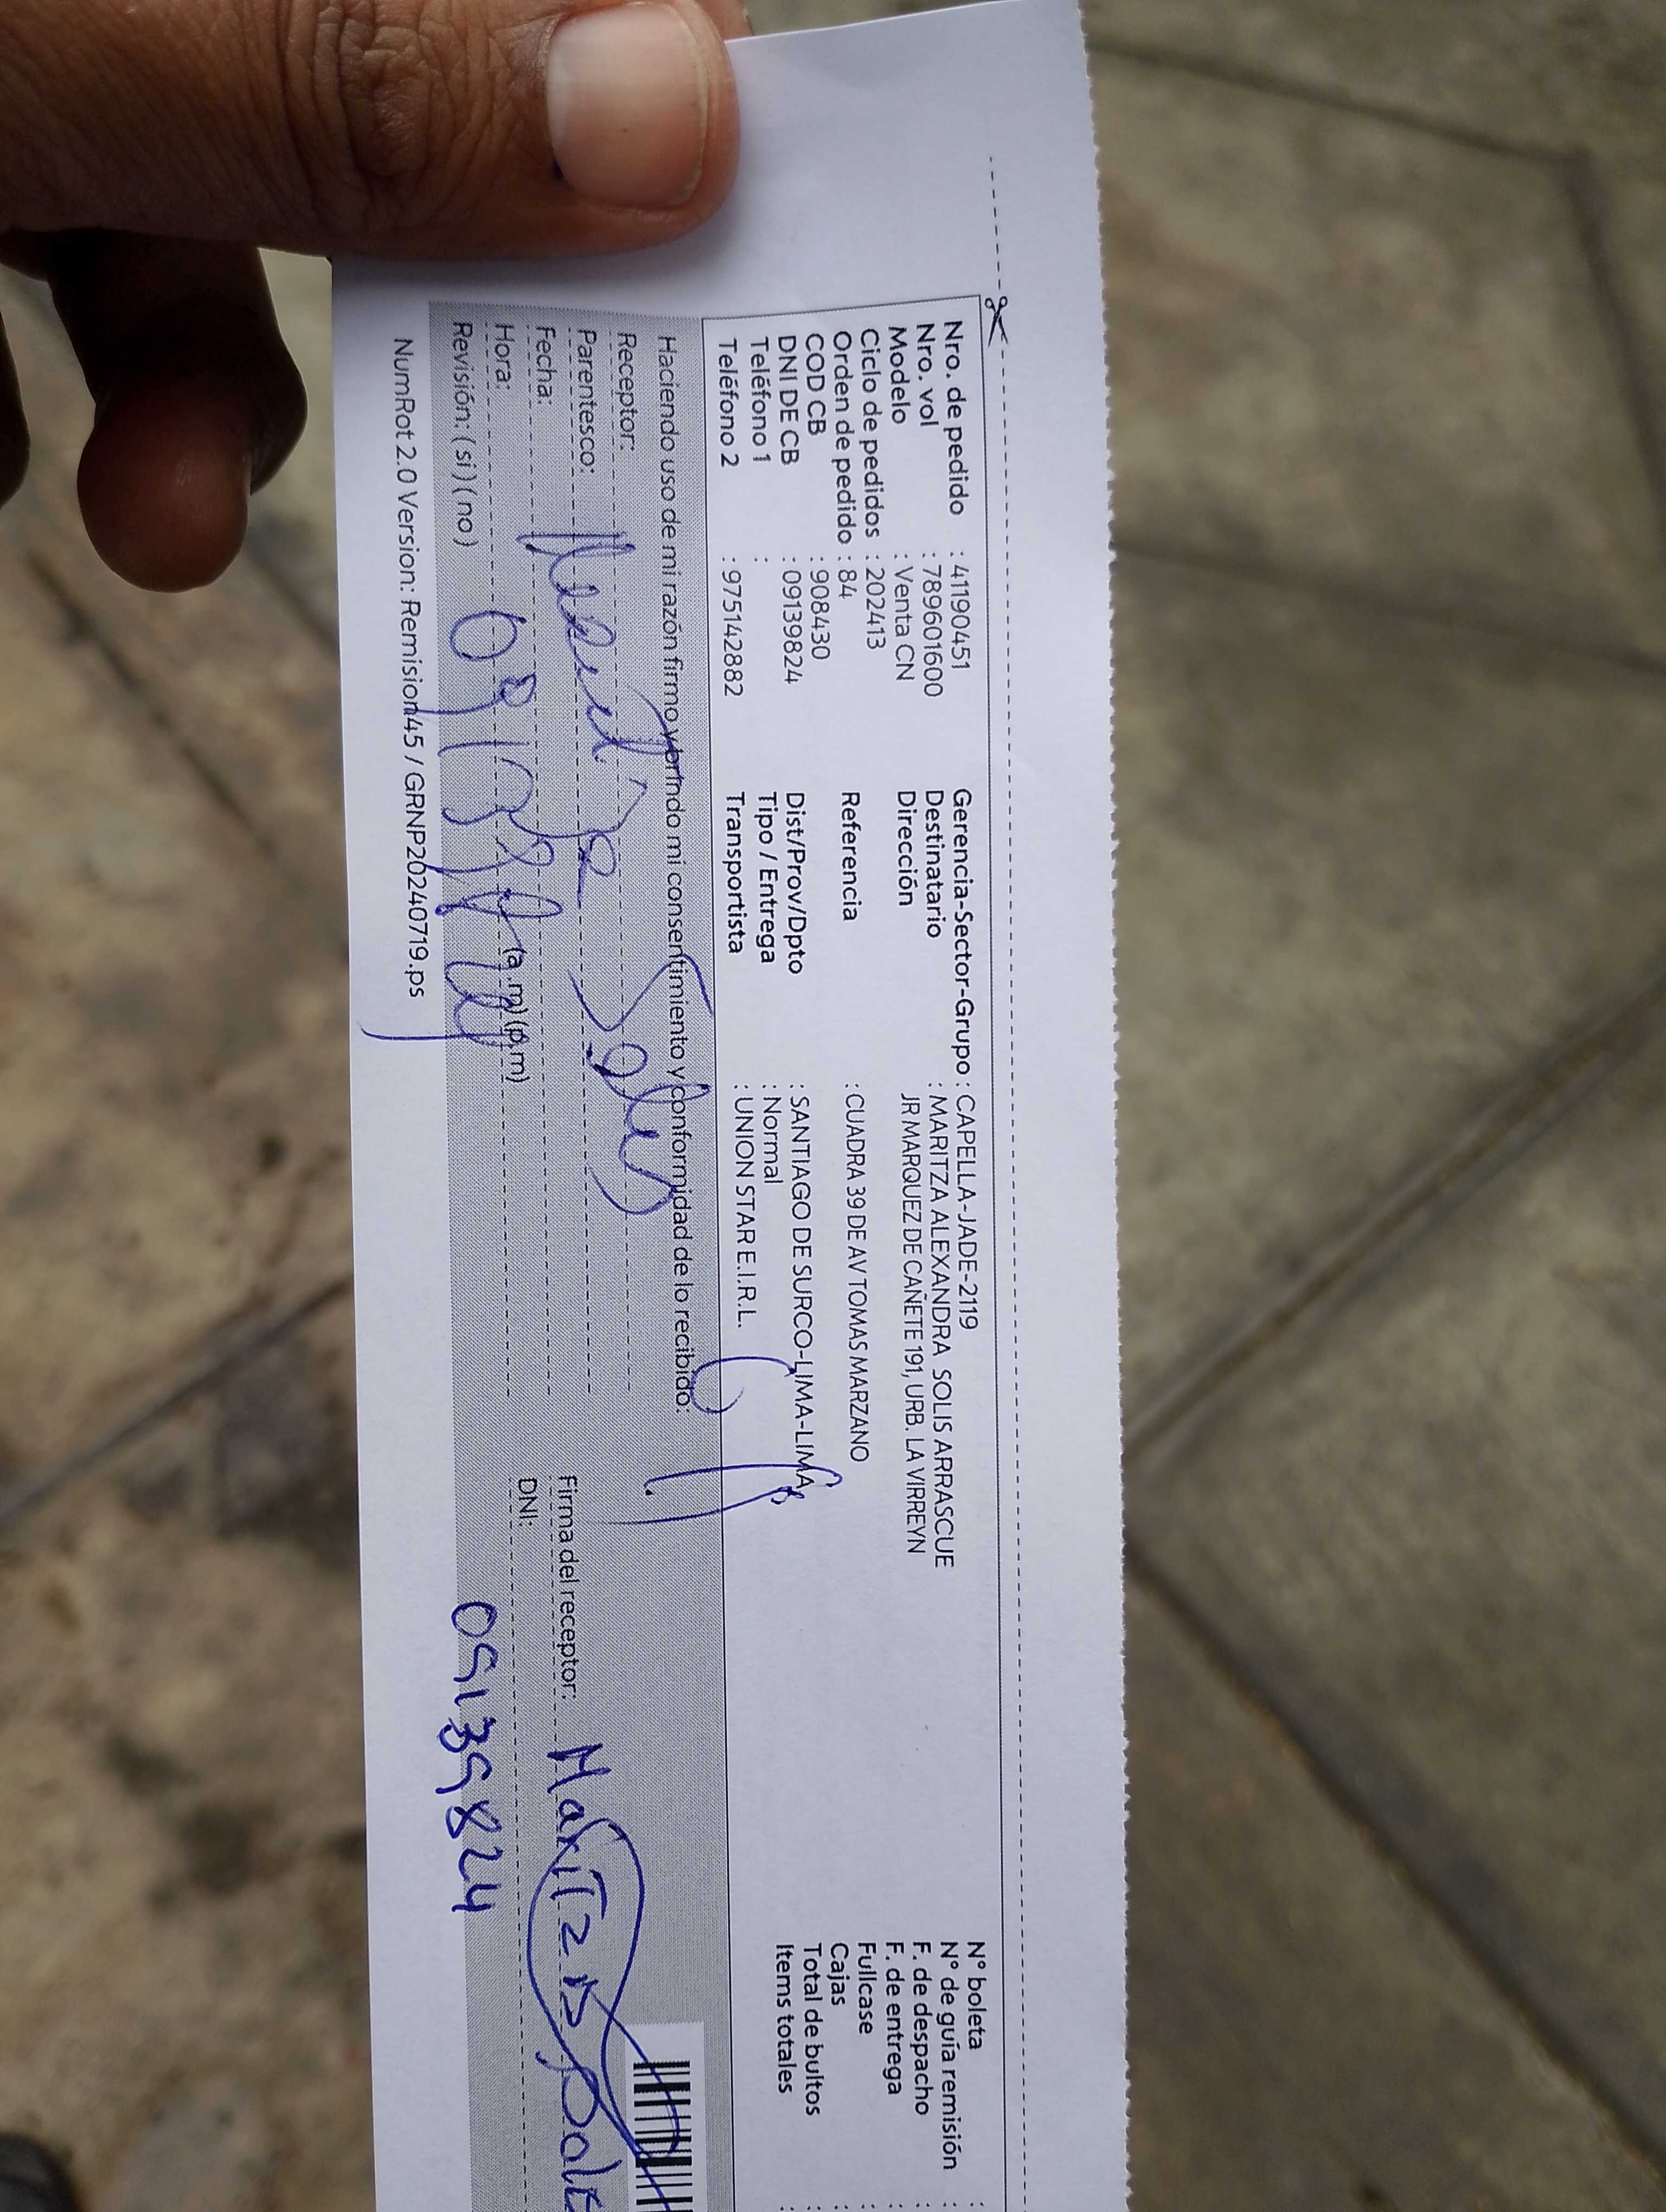 Nro. de pedido : 41190451
Nro. vol : 789601600
Modelo : Venta CN
Ciclo de pedidos : 202413
Orden de pedido : 84
COD CB : 908430
DNI DE CB : 09139824
Teléfono 1 :
Teléfono 2 : 975142882
Gerencia-Sector-Grupo : CAPELLA-JADE-2119
Destinatario : MARITZA ALEXANDRA SOLIS ARRASCUE
Dirección : JR MARQUEZ DE CAÑETE 191, URB. LA VIRREYN
Referencia : CUADRA 39 DE AV TOMAS MARZANO
Dist/Prov/Dpto : SANTIAGO DE SURCO-LIMA-LIMA
Tipo / Entrega : Normal
Transportista : UNION STAR E.I.R.L.
N° boleta :
N° de guía remisión :
F. de despacho :
F. de entrega :
Fullcase :
Cajas :
Total de bultos :
Items totales :
Haciendo uso de mi razón firmo y brindo mi consentimiento y conformidad de lo recibido:
Receptor:
Parentesco:
Fecha:
Hora: (a.m) (p.m)
Revisión: (si) (no)
Firma del receptor: Maritza
DNI: 09139824
NumRot 2.0 Version: Remision45 / GRNP20240719.ps